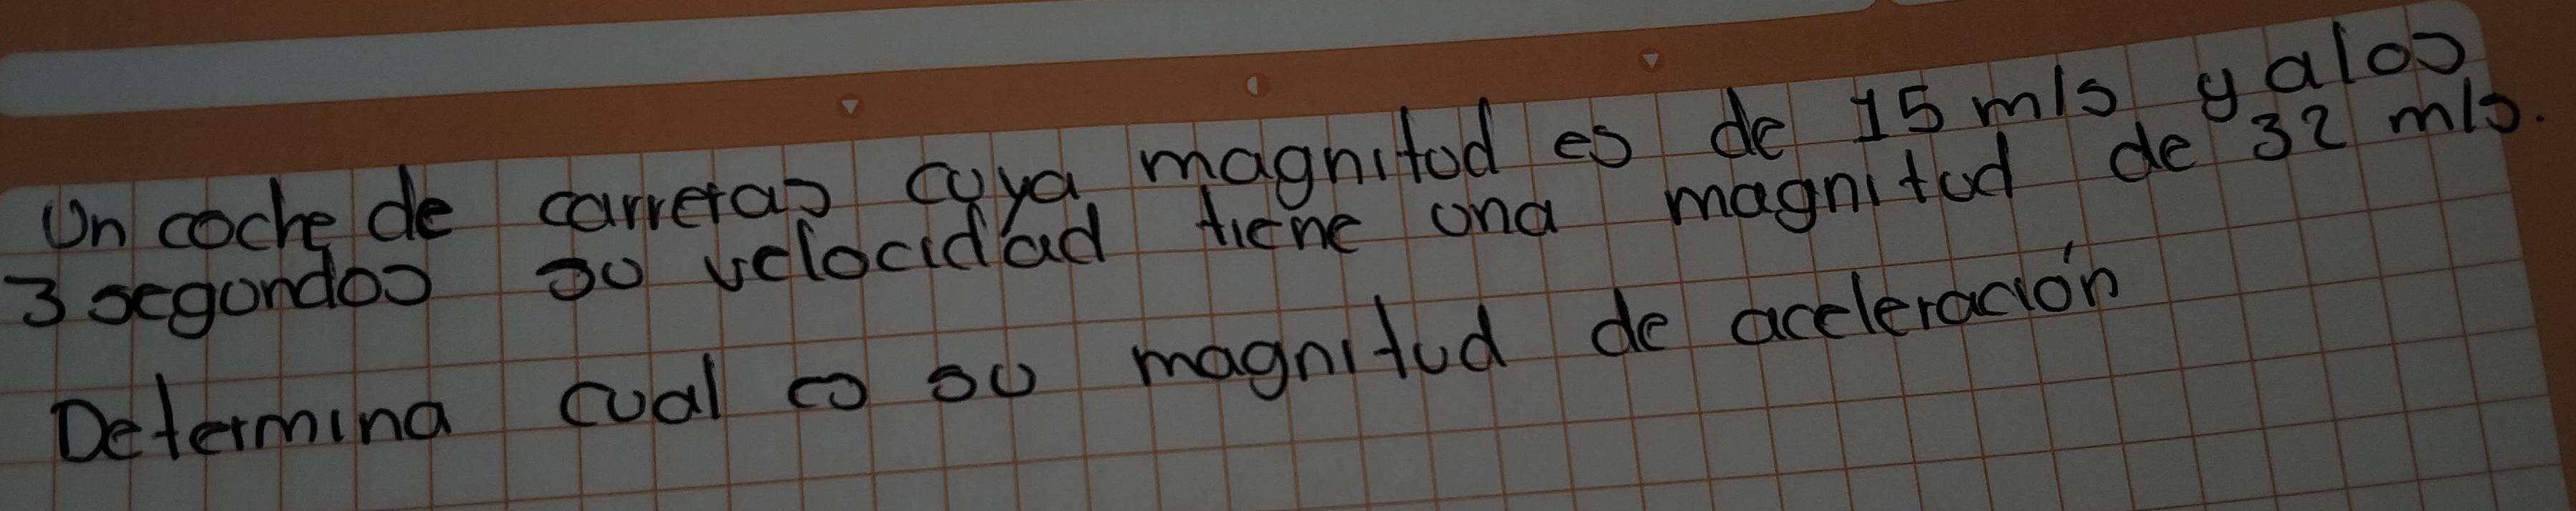 Un coche de carreras cuya magnitud es de 15 m/s y a los
3 segundos su velocidad tiene una magnitud de 32 m/s.
Determina cual es su magnitud de aceleración